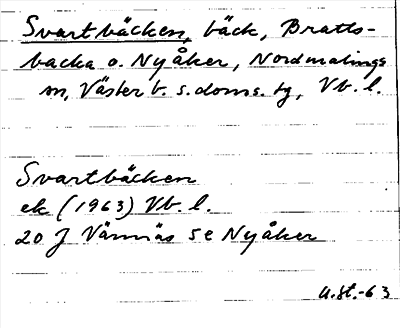 Svartbäcken, bäck, Bratts-
backa o. Nyåker, Nordmalings
sn, Västerb. s.doms. tg, Vb. l.
Svartbäcken
ek (1963) Vb. l.
20 J Vännäs se Nyåker
U.St.-63